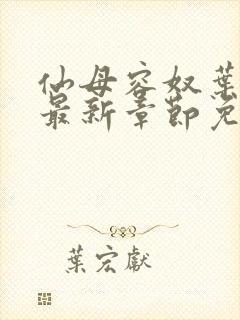 仙母容奴葉
最新章節免
葉宏獻